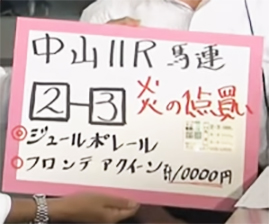 中山11R 馬連
2-3 炎の1点買い
◎ジュールポレール
○フロンテアクイーン 計10000円